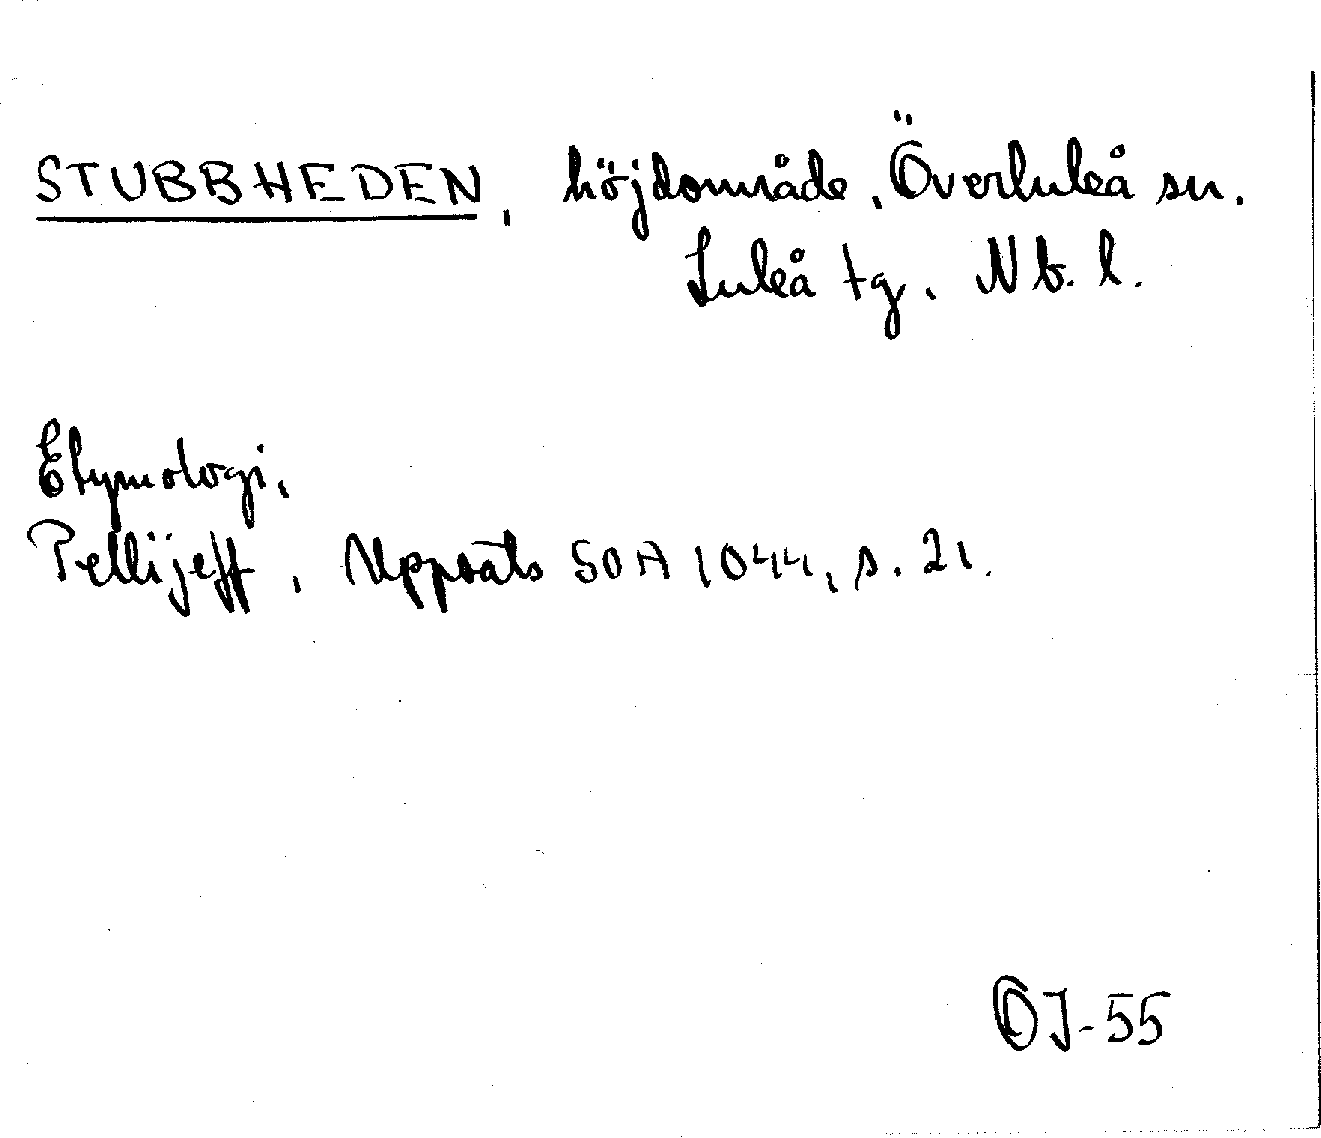 STUBBHEDEN, höjdområde, Överluleå sn.
Luleå tg. Nb. l.
Etymologi,
Pellijeff, Uppsats SOA 1044, s. 21.
OJ-55